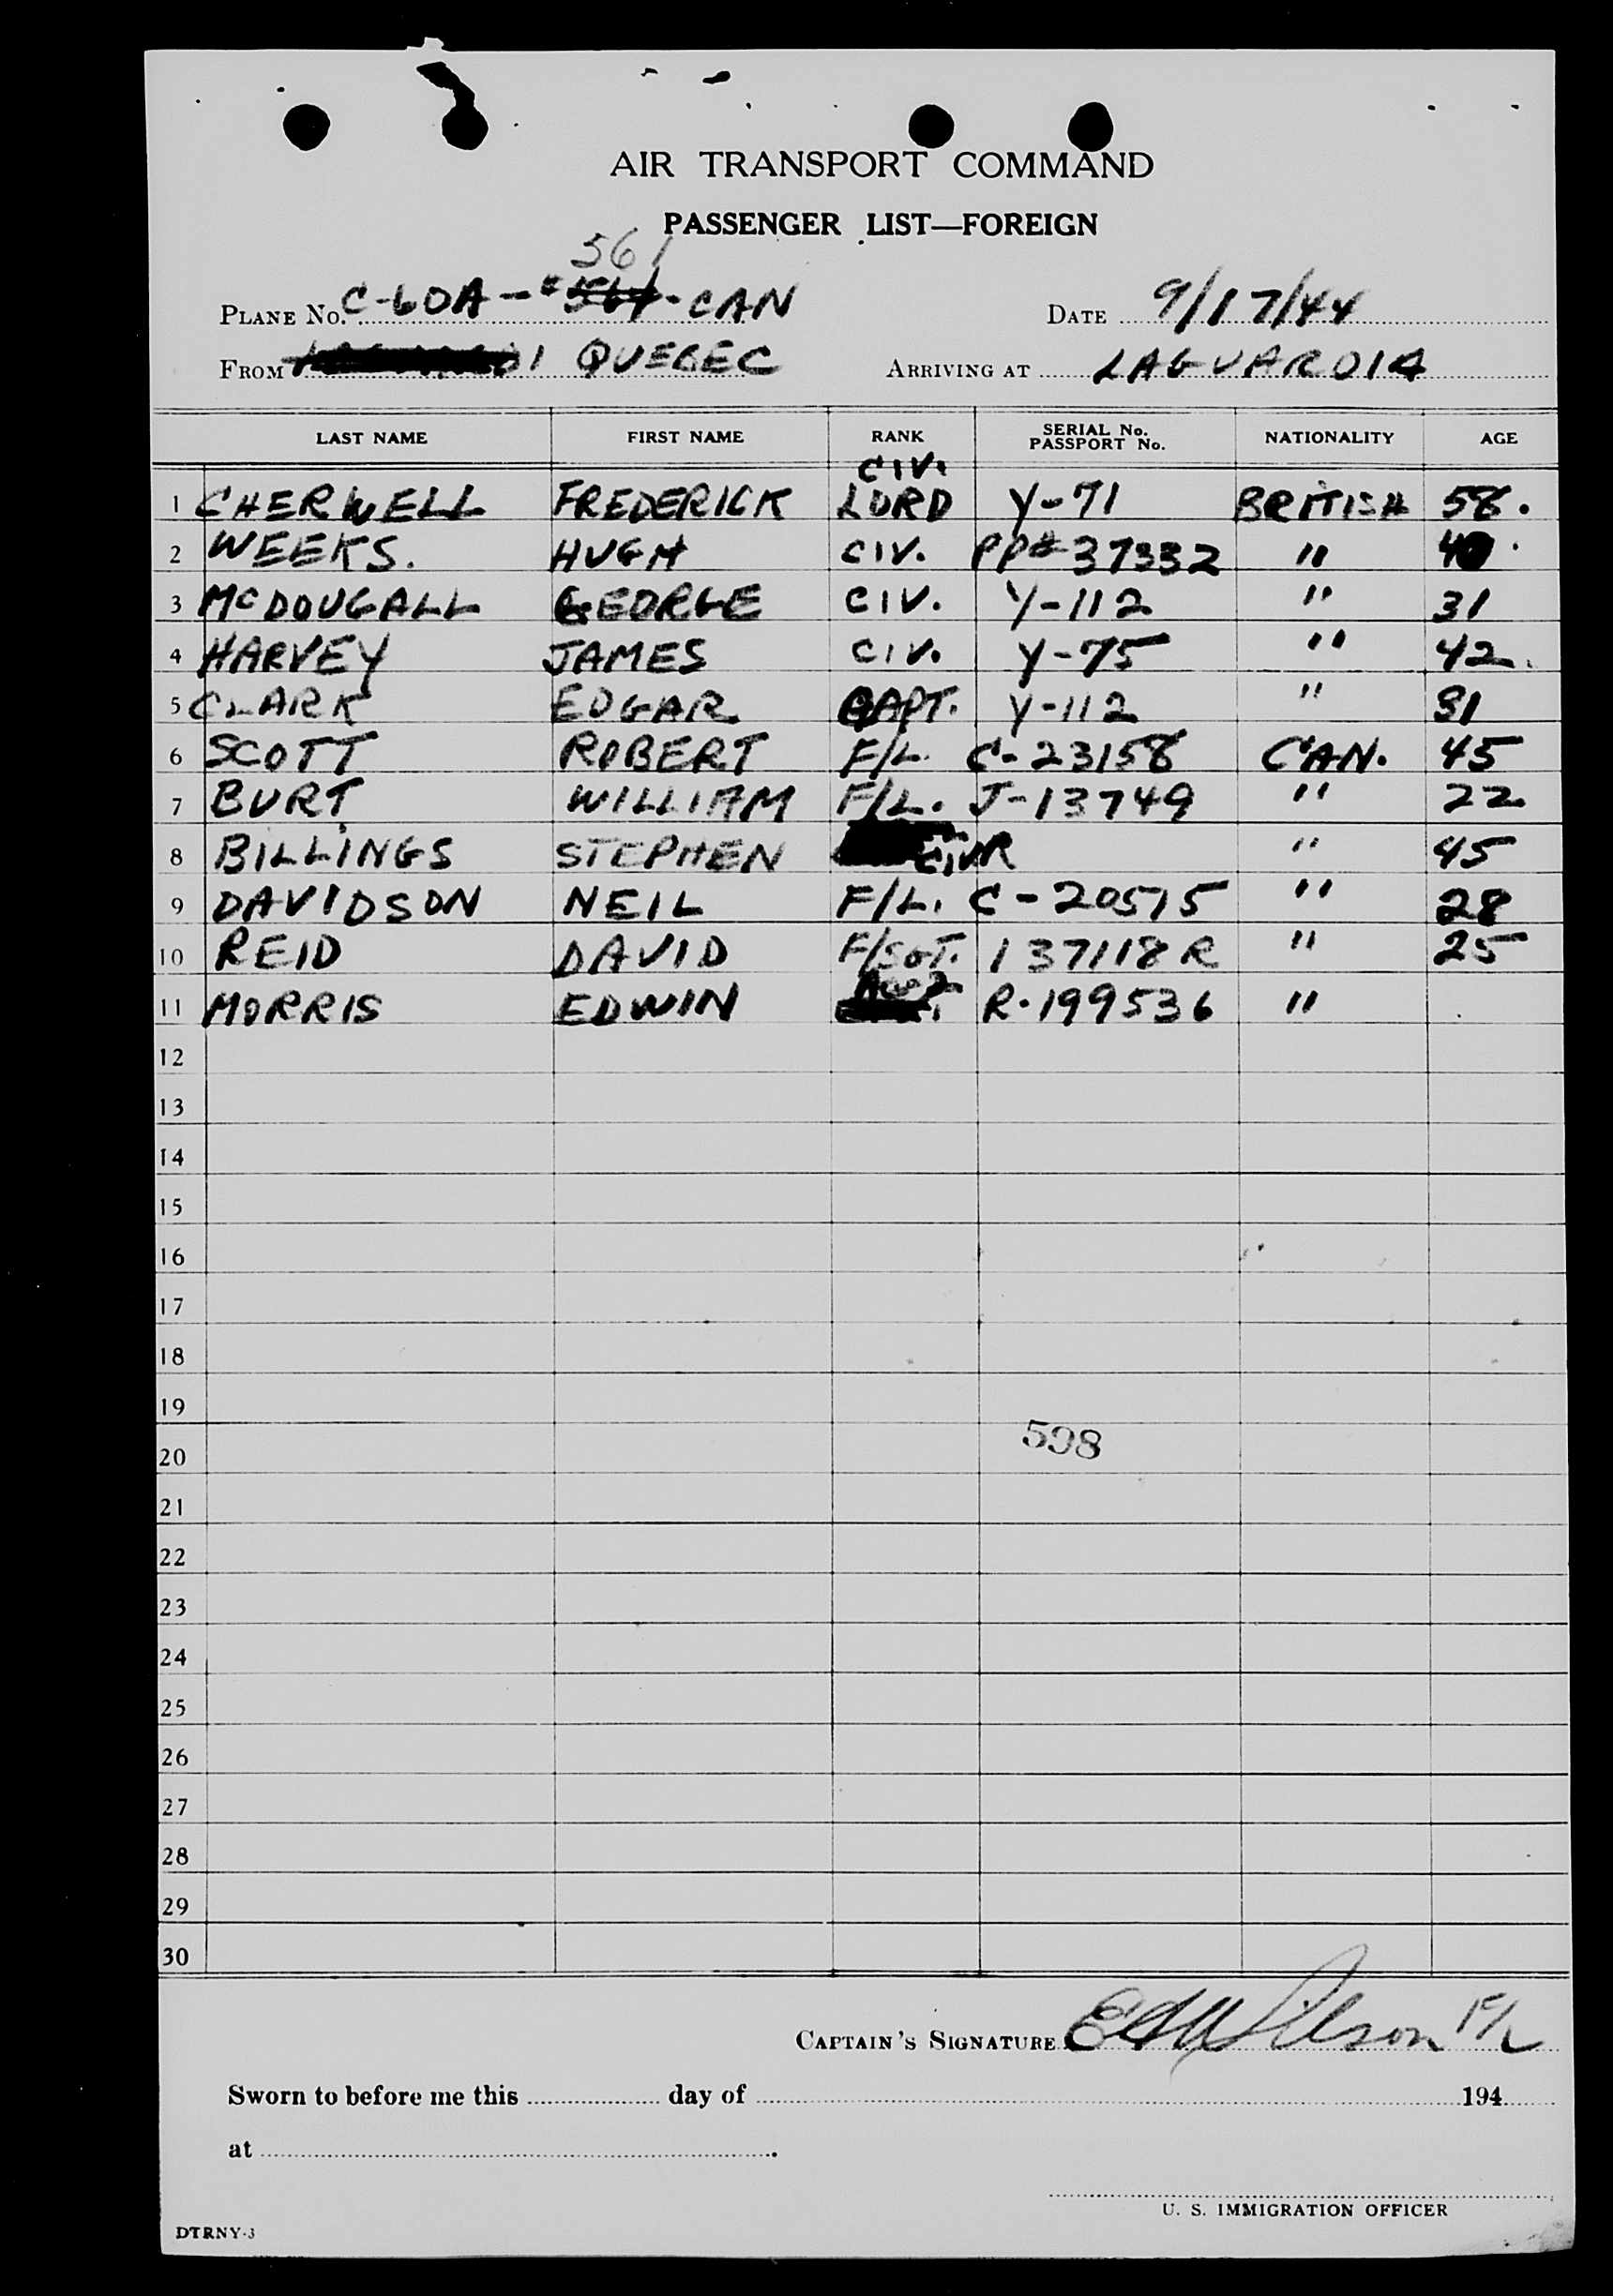 AIR TRANSPORT COMMAND
PASSENGER LIST—FOREIGN
561
PLANE No. C-60A-# 564 - CAN
DATE 9/17/44
FROM QUEBEC
ARRIVING AT LAGUARDIA
LAST NAME FIRST NAME RANK SERIAL No. PASSPORT No. NATIONALITY AGE
CIV.
1 CHERWELL FREDERICK LORD Y-71 BRITISH 58.
2 WEEKS. HUGH CIV. PP# 37332 " 40.
3 McDOUGALL GEORGE CIV. Y-112 " 31
4 HARVEY JAMES CIV. Y-75 " 42.
5 CLARK EDGAR CAPT. Y-112 " 31
6 SCOTT ROBERT F/L. C-23158 CAN. 45
7 BURT WILLIAM F/L. J-13749 " 22
8 BILLINGS STEPHEN " 45
9 DAVIDSON NEIL F/L. C-20515 " 28
10 REID DAVID F/SGT. 137118 R " 25
11 MORRIS EDWIN R.199536 "
12
13
14
15
16
17
18
19
598
20
21
22
23
24
25
26
27
28
29
30
CAPTAIN'S SIGNATURE Wilson F/L
Sworn to before me this day of 194
at
U. S. IMMIGRATION OFFICER
DTRNY-3